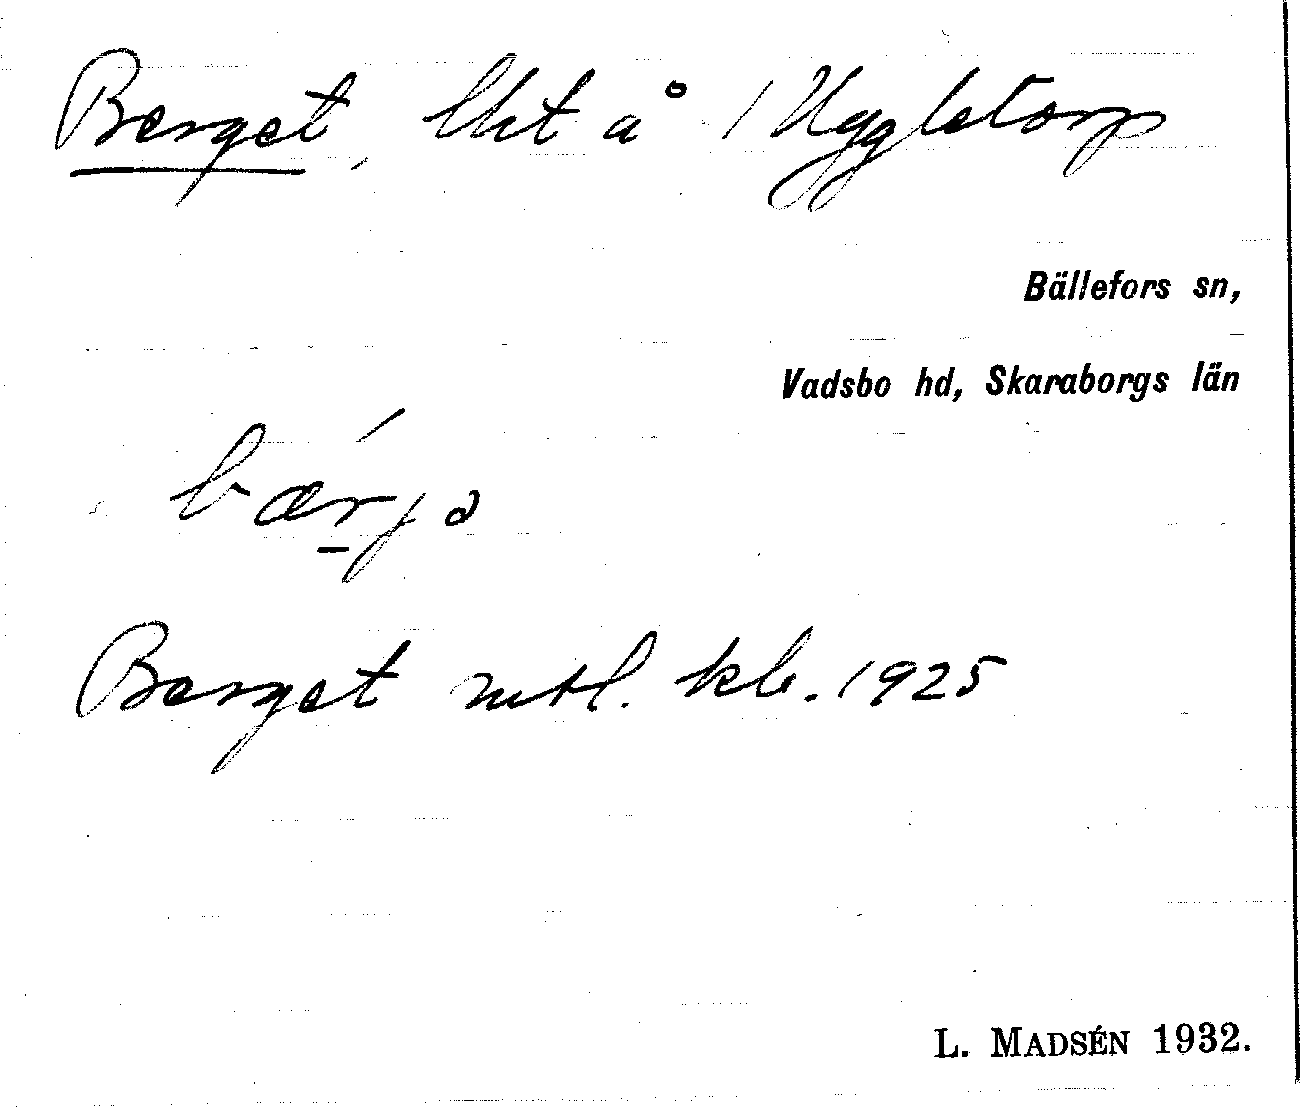 Berget, lht å 1 Uggletorp
Bällefors sn,
Vadsbo hd, Skaraborgs län
bær̲ja ́
Berget mtl. kb. 1925
L. MADSÉN 1932.